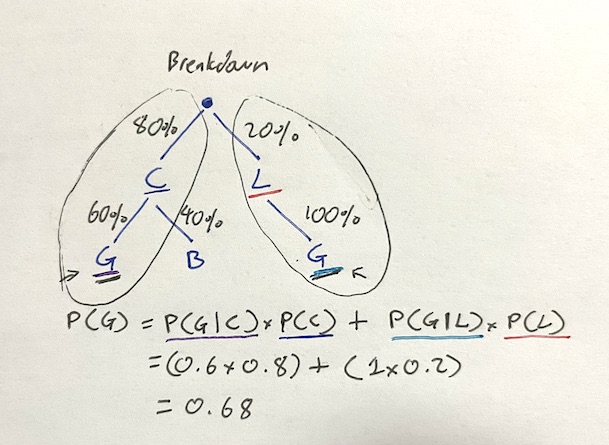 Breakdown
80% 20%
C L
60% 40% 100%
G B G
P(G) = P(G|C) × P(C) + P(G|L) × P(L)
= (0.6 × 0.8) + (1 × 0.2)
= 0.68